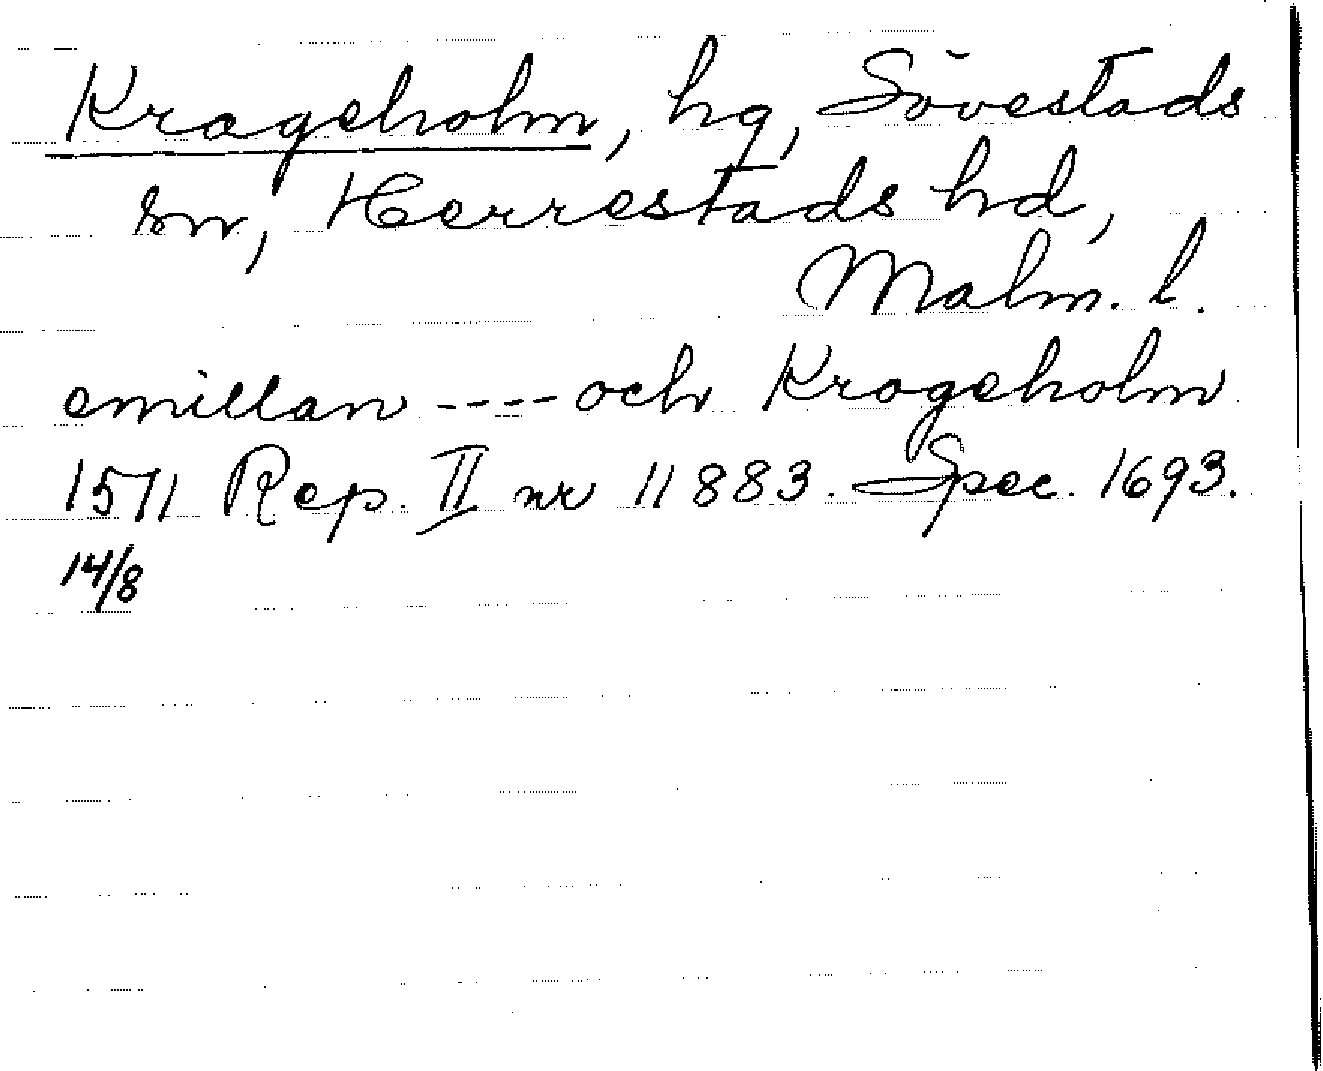 Krageholm, hg, Sövestads
sn, Herrestads hd,
Malm. l.
emillan ---- och Krogeholm
1511 Rep. II nr 11883. Spec. 1693.
14/8